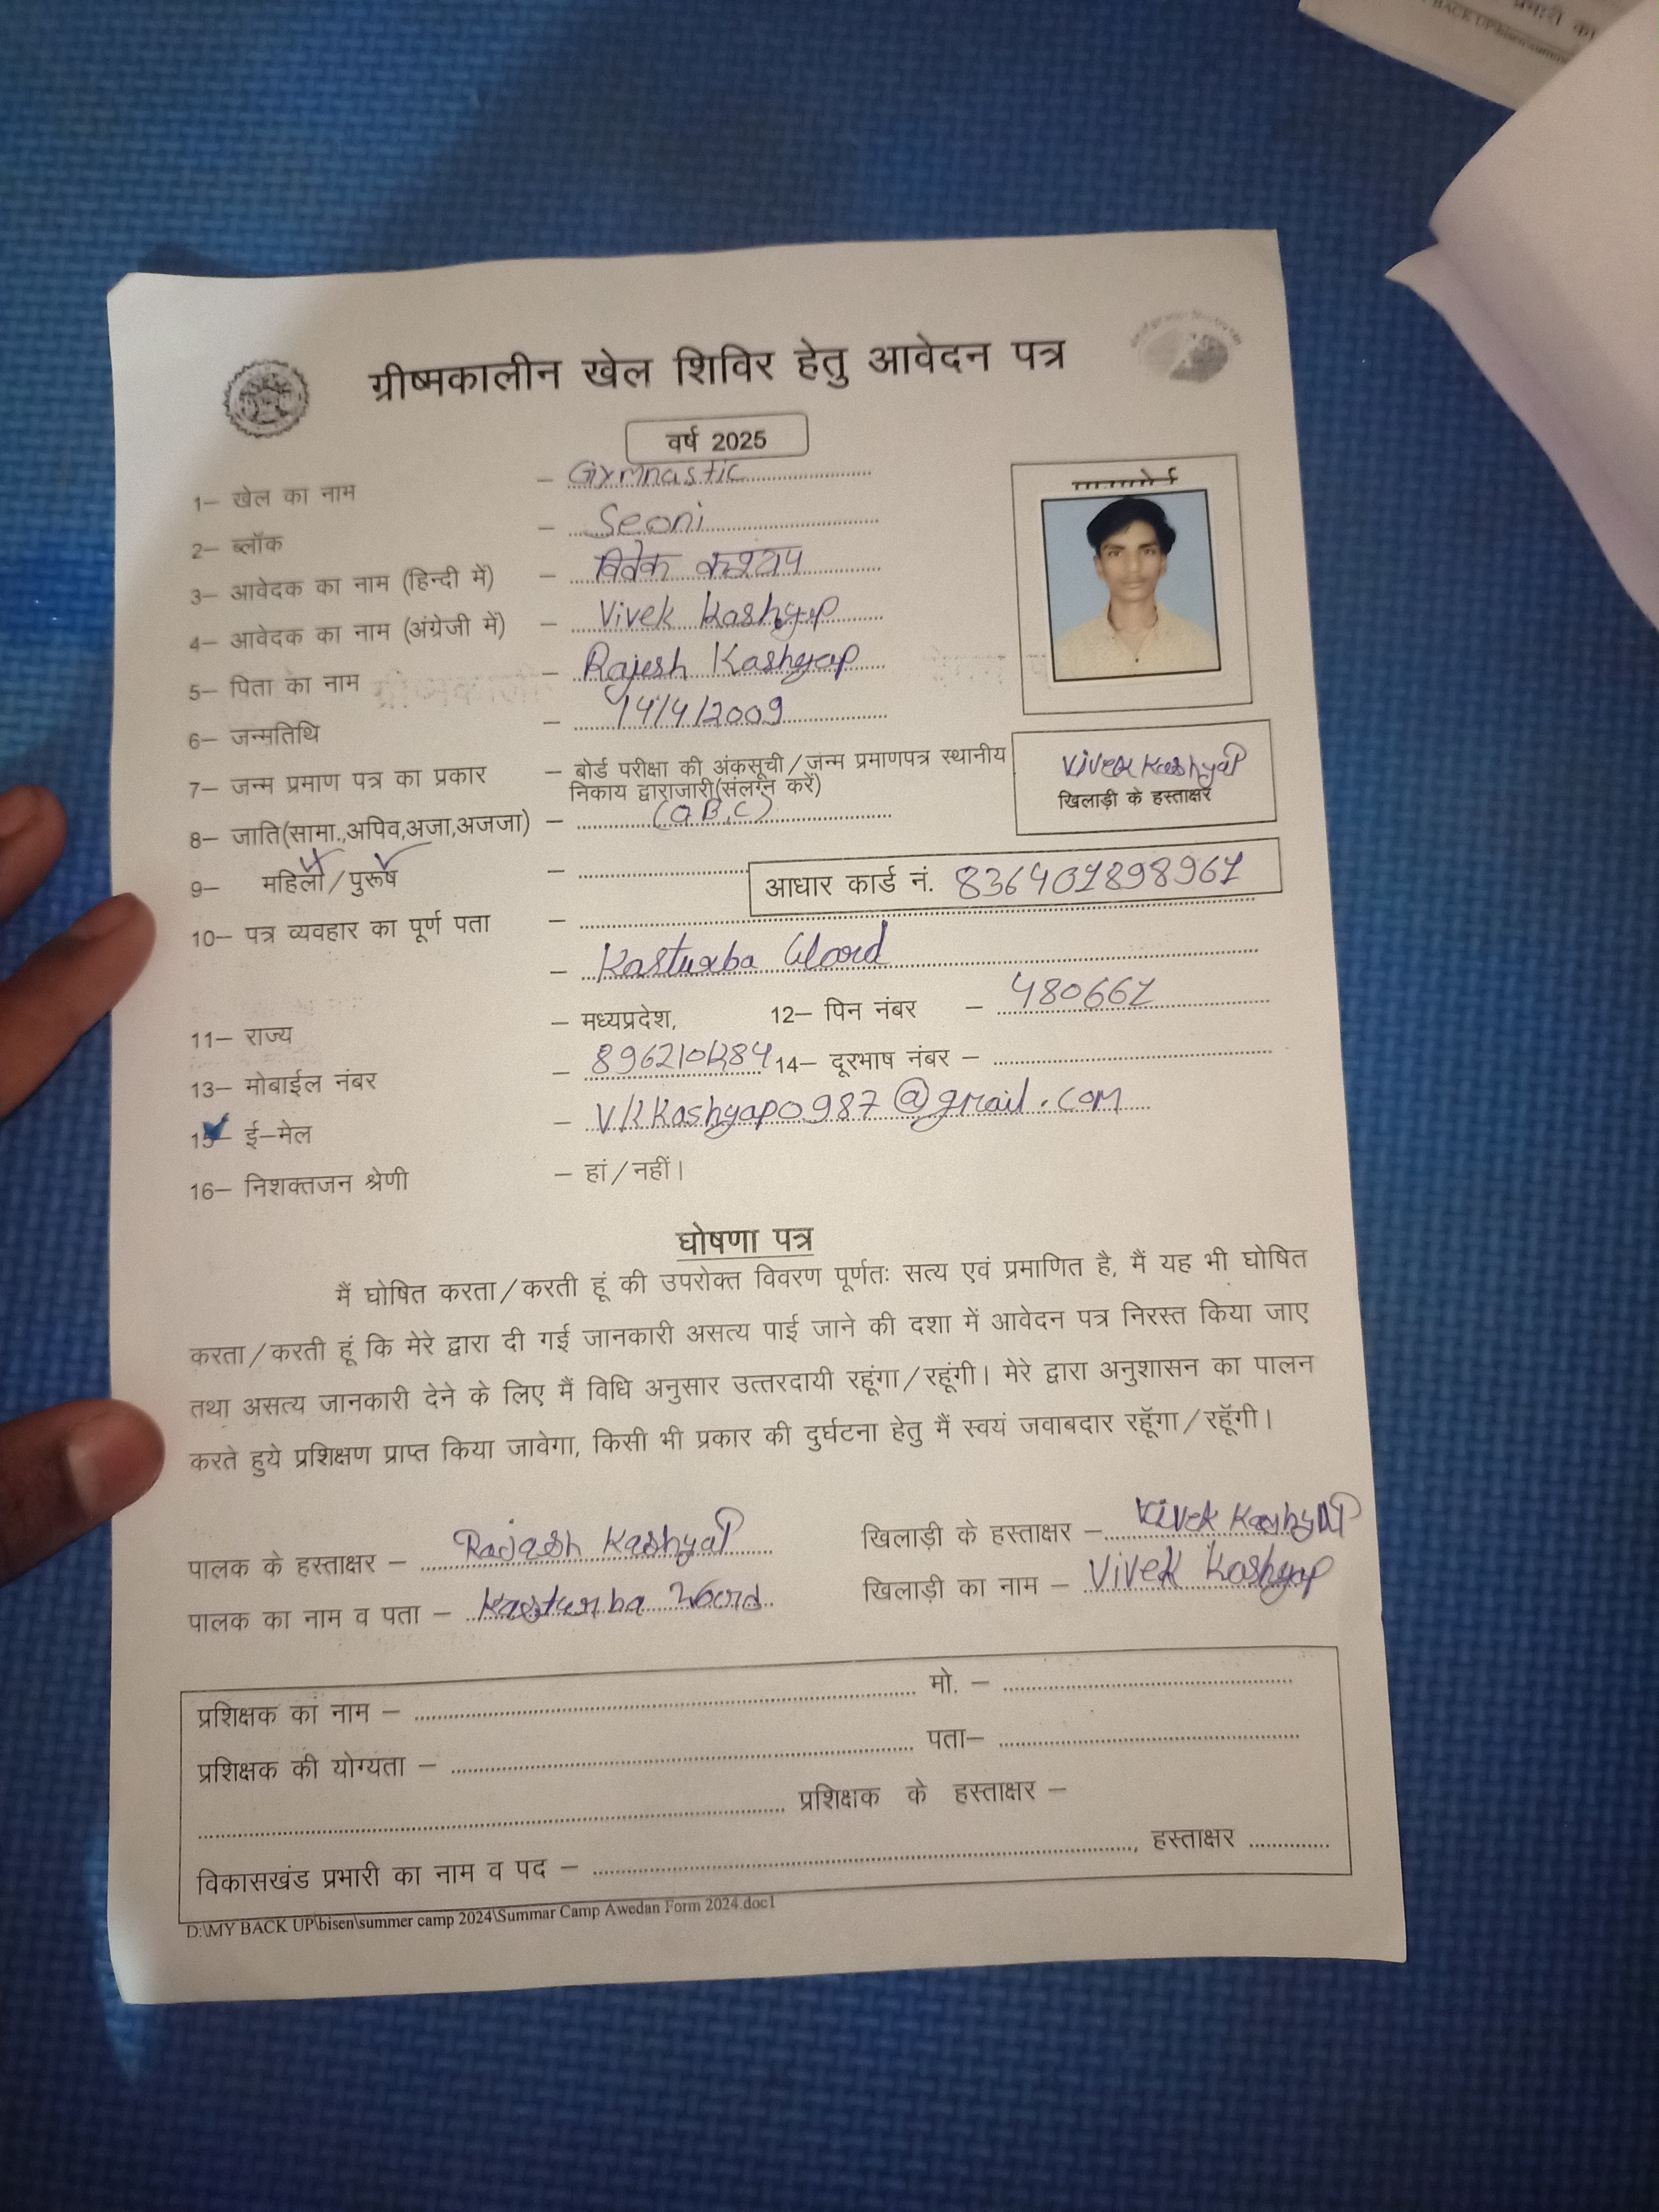 ग्रीष्मकालीन खेल शिविर हेतु आवेदन पत्र
वर्ष 2025
1– खेल का नाम – Gymnastic
2– ब्लॉक – Seoni
3– आवेदक का नाम (हिन्दी में) – विवेक कश्यप
4– आवेदक का नाम (अंग्रेजी में) – Vivek Kashyap
5– पिता का नाम – Rajesh Kashyap
6– जन्मतिथि – 14/4/2009
7– जन्म प्रमाण पत्र का प्रकार – बोर्ड परीक्षा की अंकसूची/जन्म प्रमाणपत्र स्थानीय
निकाय द्वाराजारी(संलग्न करें)
Vivek Kashyap
खिलाड़ी के हस्ताक्षर
8– जाति(सामा.,अपिव,अजा,अजजा) – (OB,C)
9– महिला/पुरूष –
आधार कार्ड नं. 836407898967
10– पत्र व्यवहार का पूर्ण पता –
– Kasturba Ward
11– राज्य – मध्यप्रदेश, 12– पिन नंबर – 480661
13– मोबाईल नंबर – 14– दूरभाष नंबर –
15– ई–मेल – VKKashyap0987@gmail.com
16– निशक्तजन श्रेणी – हां/नहीं।
घोषणा पत्र
मैं घोषित करता/करती हूं की उपरोक्त विवरण पूर्णतः सत्य एवं प्रमाणित है, मैं यह भी घोषित
करता/करती हूं कि मेरे द्वारा दी गई जानकारी असत्य पाई जाने की दशा में आवेदन पत्र निरस्त किया जाए
तथा असत्य जानकारी देने के लिए मैं विधि अनुसार उत्तरदायी रहूंगा/रहूंगी। मेरे द्वारा अनुशासन का पालन
करते हुये प्रशिक्षण प्राप्त किया जावेगा, किसी भी प्रकार की दुर्घटना हेतु मैं स्वयं जवाबदार रहूँगा/रहूँगी।
पालक के हस्ताक्षर – Rajesh Kashyap खिलाड़ी के हस्ताक्षर – Vivek Kashyap
पालक का नाम व पता – Kasturba Ward खिलाड़ी का नाम – Vivek Kashyap
प्रशिक्षक का नाम – मो. –
प्रशिक्षक की योग्यता – पता–
प्रशिक्षक के हस्ताक्षर –
विकासखंड प्रभारी का नाम व पद – , हस्ताक्षर
D:\MY BACK UP\bisen\summer camp 2024\Summar Camp Awedan Form 2024.doc1